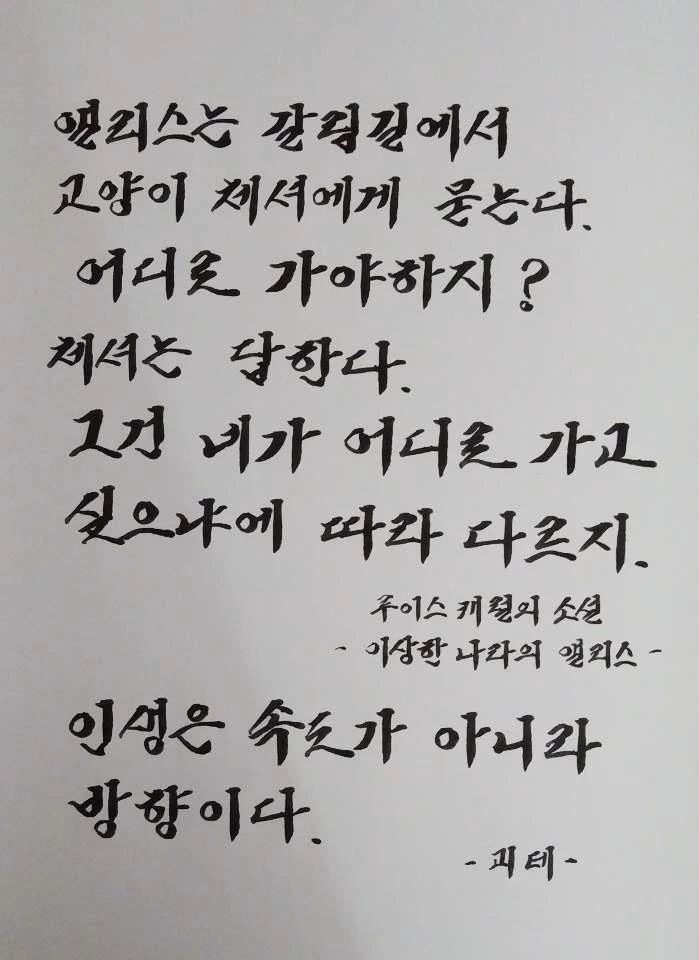 앨리스는 갈림길에서
고양이 체셔에게 묻는다.
어디로 가야하지?
체셔는 답한다.
그건 네가 어디로 가고
싶으냐에 따라 다르지.
루이스 캐럴의 소설
- 이상한 나라의 앨리스 -
인생은 속도가 아니라
방향이다.
- 괴테 -